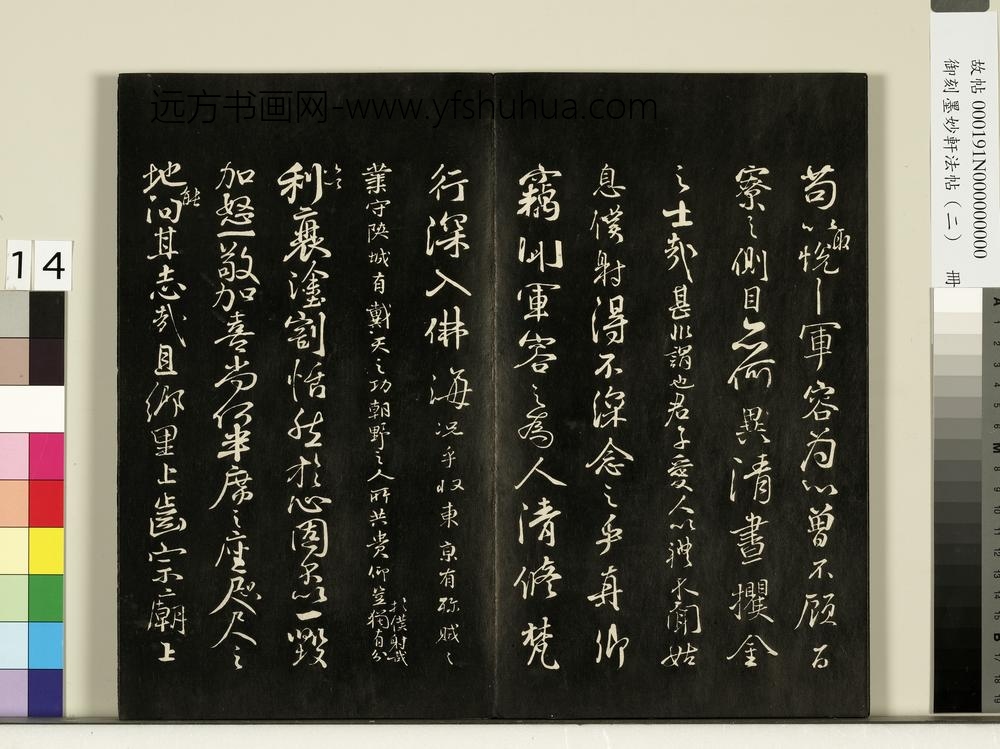 苟以取悦軍容為心曾不顧百
寮之側目亦何異清晝攫金
之士哉甚非謂也君子愛人以禮不聞姑
息僕射得不深念之乎真卿
竊聞軍容之為人清修梵
行深入佛海況乎收東京有殄賊之
業守陝城有戴天之功朝野之人所共貴仰豈獨有分於僕射哉
加以利衰塗割恬然於心固不以一毀
加怒一敬加喜尚何半席之座咫尺之
地能汩其志哉且鄉里上齒宗廟上
远方书画网-www.yfshuhua.com
故帖000191N000000000
御刻墨妙軒法帖(二) 冊
14